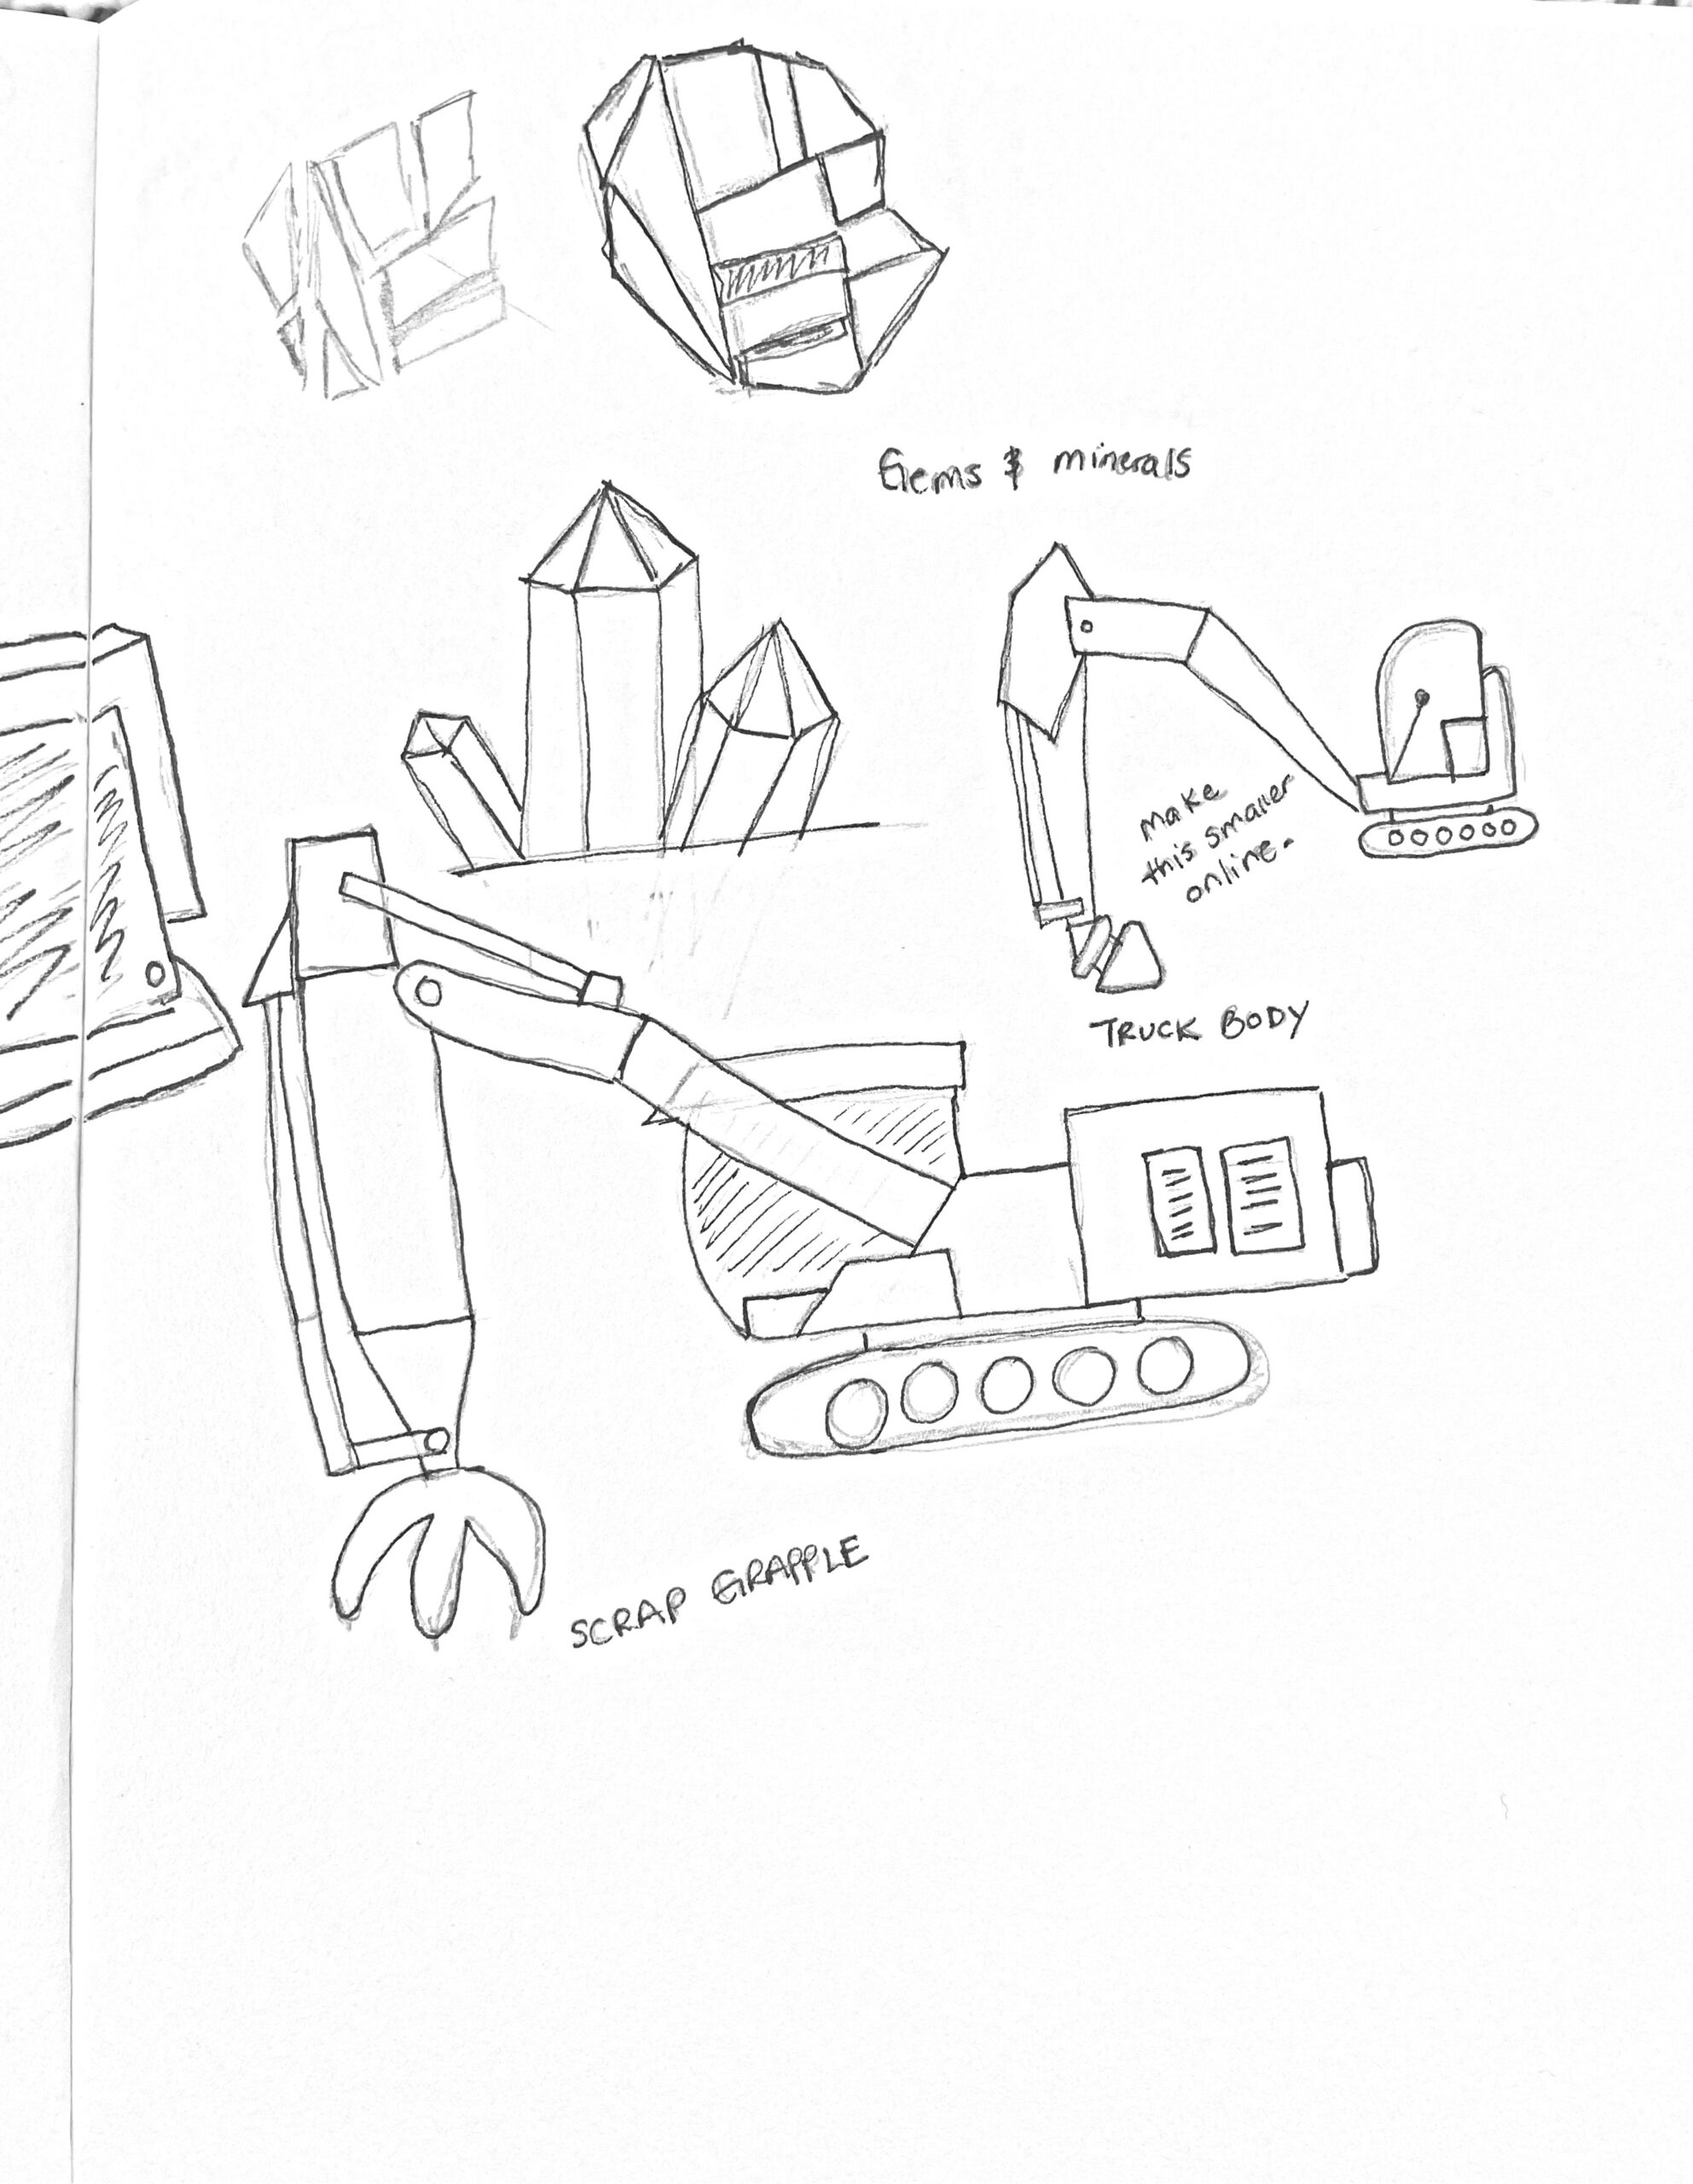 Gems & minerals
make
this smaller
online.
TRUCK BODY
SCRAP GRAPPLE